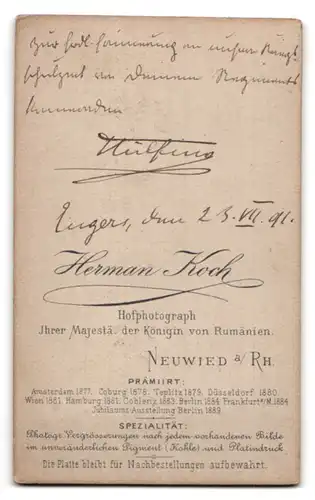 Zur frdl. Erinnerung an unsere Kriegs-
schulzeit von Deinem Regiments
Kameraden
Hülfing
Engers, den 23. VII. 91.
Herman Koch
Hofphotograph
Jhrer Majestä. der Königin von Rumänien.
NEUWIED a/RH.
PRÄMIIRT:
Amsterdam 1877. Coburg 1878. Teplitz 1879. Düsseldorf 1880.
Wien 1881. Hamburg 1881. Coblenz 1883. Berlin 1884. Frankfurt a/M. 1884.
Jubiläums-Ausstellung Berlin 1889.
SPEZIALITÄT:
Photogr. Vergrösserungen nach jedem vorhandenen Bilde
im unveränderlichen Pigment (Kohle) und Platindruck
Die Platte bleibt für Nachbestellungen aufbewahrt.